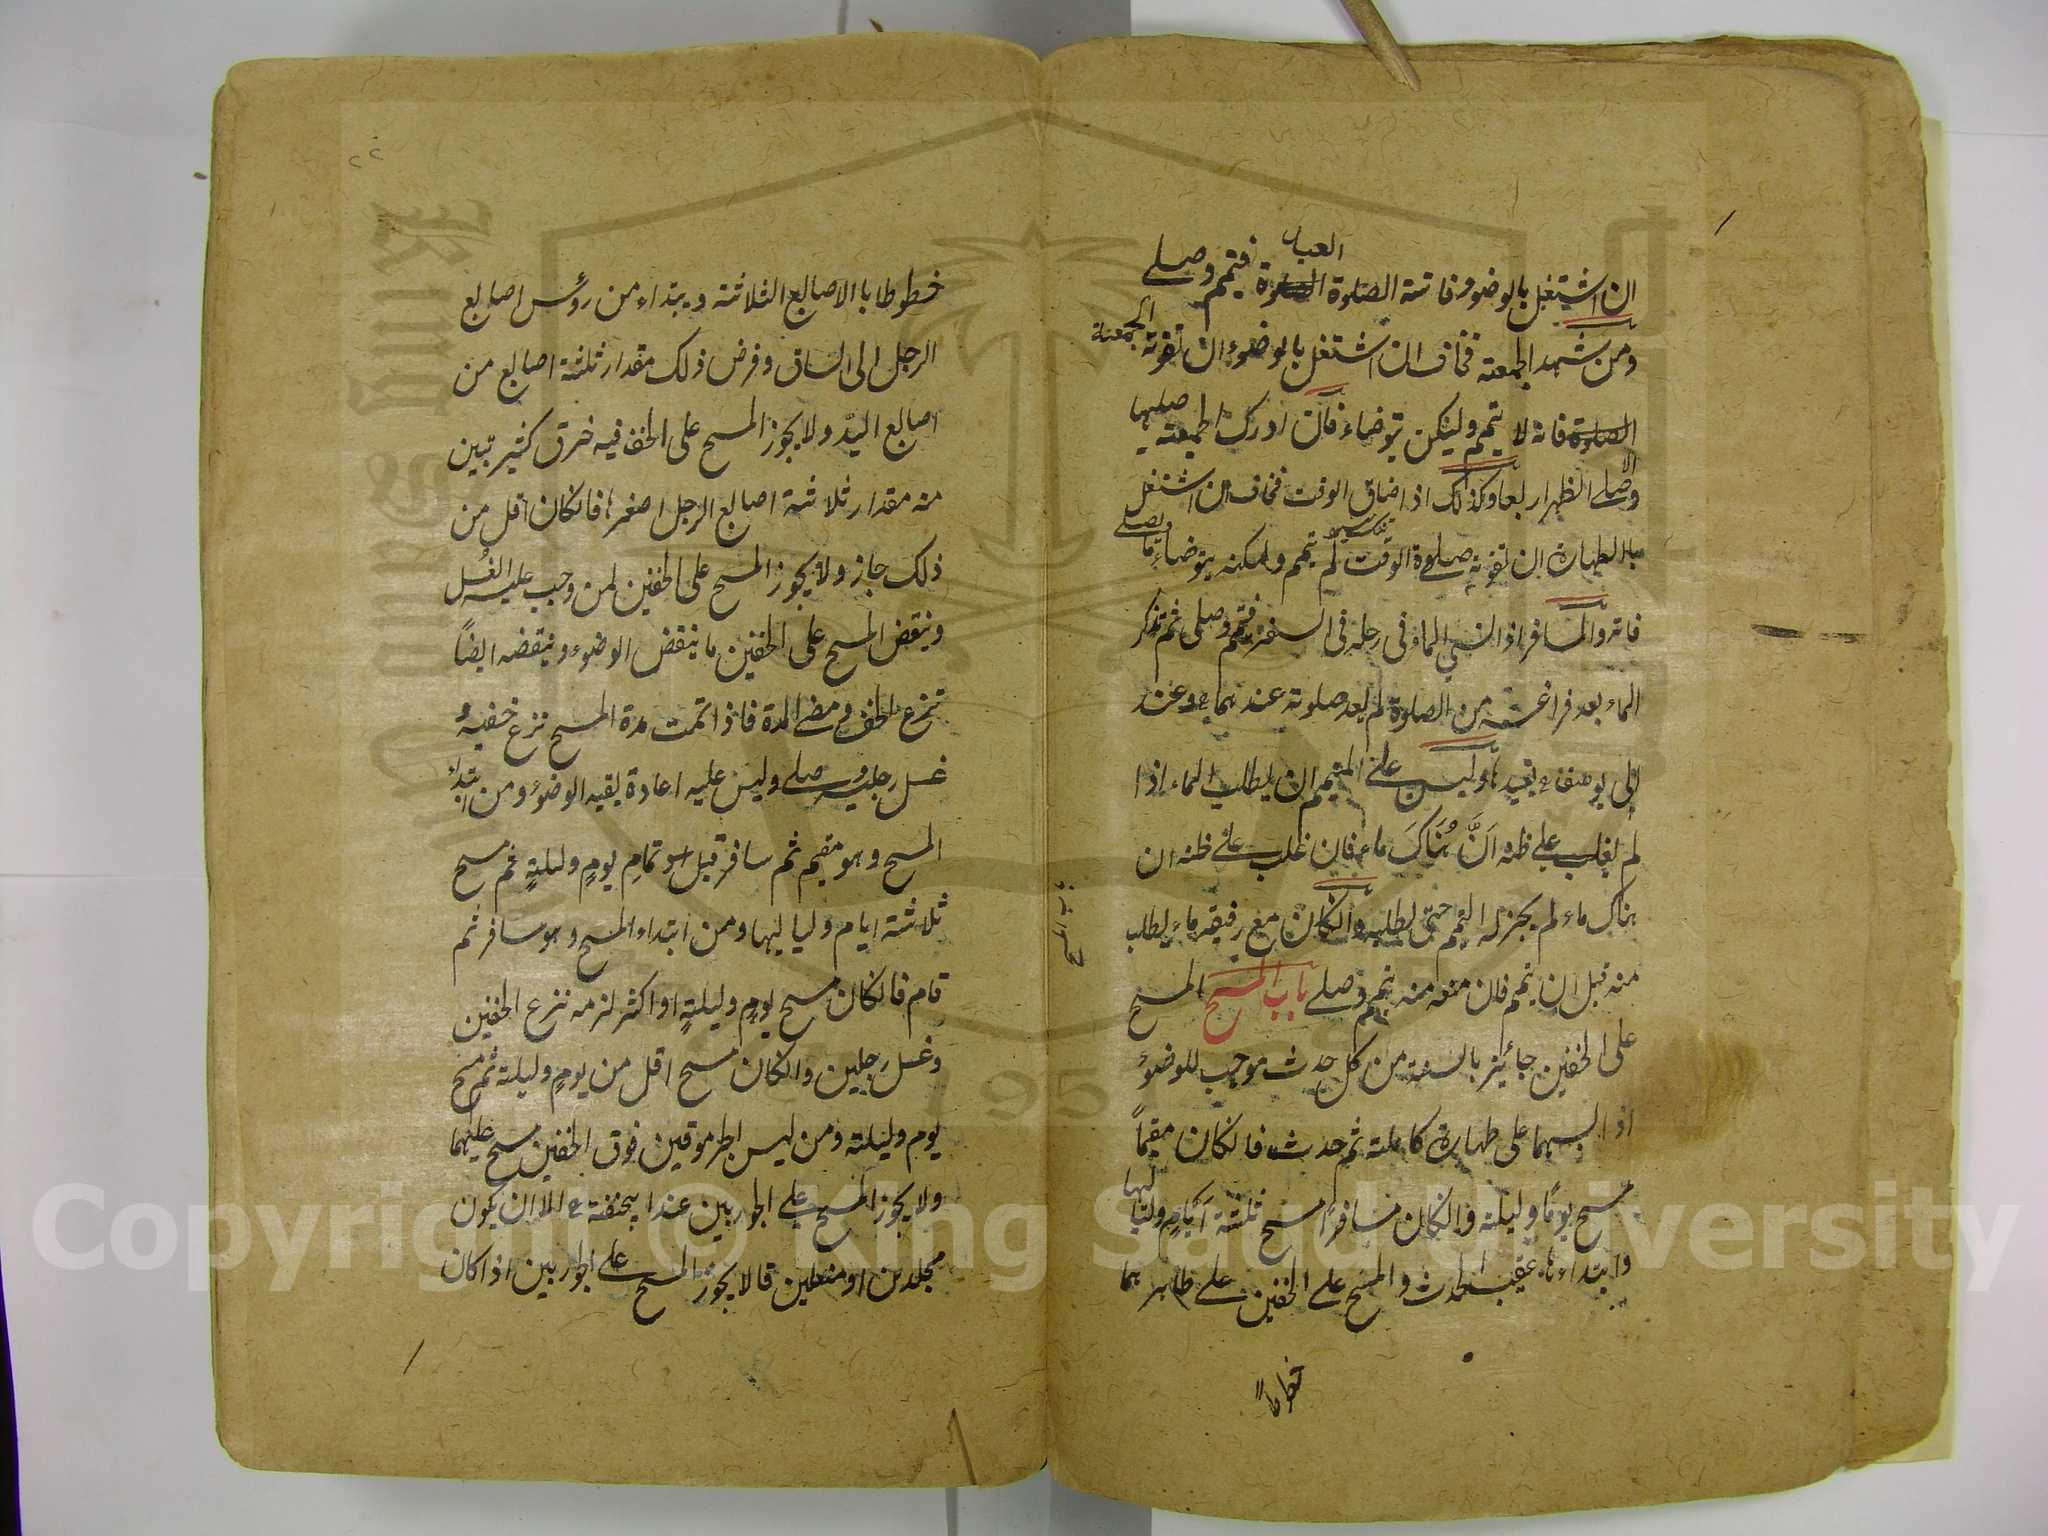 ان اشتغل بالوضوء فاتته الصلوة العيد فيتمم وصلى
ومن شهد الجمعة فخاف ان اشتغل بالوضوء ان تفوته الجمعة
الصلوة فانه لا يتمم ولكن يتوضاء فان ادرك الجمعة صليها
والا صلى الظهر اربعا وكذلك اذا ضاق الوقت فخاف ان اشتغل
بالطهارة ان تفوته صلوة الوقت لم يتمم ولكنه يتوضاء ويصلى
فاته والمسافر اذا نسي الماء فى رحله فى السفر فتمم وصلى ثم تذكر
الماء بعد فراغه من الصلوة لم يعد صلوته عندهما وعند
ابى يوسف يعيدها وليس على المتيمم ان يطلب الماء اذا
لم يغلب على ظنه اَنَّ هُنَاكَ ماء فان غلب على ظنه ان
هناك ماء لم يجز له التيمم حتى يطلبه وانكان مع رفيقه ماء يطلب
منه قبل ان يتمم فان منعه منه يتمم وصلى باب المسح المسح
على الخفين جائيز بالسنة من كل حدث موجب للوضوء
اذا لبسهما على طهارة كاملة ثم حدث فانكان مقيماً
مسح يوما وليلة وانكان مسافراً مسح ثلثة اَيَّامٍ ولياليها
وابتداءها عقيب الحدث والمسح على الخفين على ظاهرهما
خطوطاً
باب المسح
٢٢
خطوطا با الاصابع الثلاثة ويبتداء من رؤس اصابع
الرجل الى الساق وفرض ذلك مقدار ثلثة اصابع من
اصابع اليد ولا يجوز المسح على الخف فيه خرق كثير تبين
منه مقدار ثلاثة اصابع الرجل اصغرها فانكان اقل من
ذلك جاز ولا يجوز المسح على الخفين لمن وجب عليه الغُسل
وينقض المسح على الخفين ما ينقض الوضوء وينقضه ايضاً
نزع الخف ومضى المدة فاذا تمت مدة المسح نزع خفيه و
غسل رجليه وصلى وليس عليه اعادة بقيه الوضوء ومن ابتداء
المسح وهو مقيم ثم سافر قبل تمامِ يومٍ وليلةٍ ثم مسح
ثلاثة ايام ولياليها ومن ابتداء المسح وهو سافر ثم
قام فانكان مسح يومٍ وليلةٍ او اكثر لزمه نزع الخفين
وغسل رجلين وانكان مسح اقل من يومٍ وليلة ثم مسح
يوم وليلة ومن ليس الجرموقين فوق الخفين مسح عليهما
ولا يجوز المسح على الجوربين عند ابيحنفة الا ان يكون
مجلدين او منعلين قالا يجوز المسح على الجوربين اذا كان